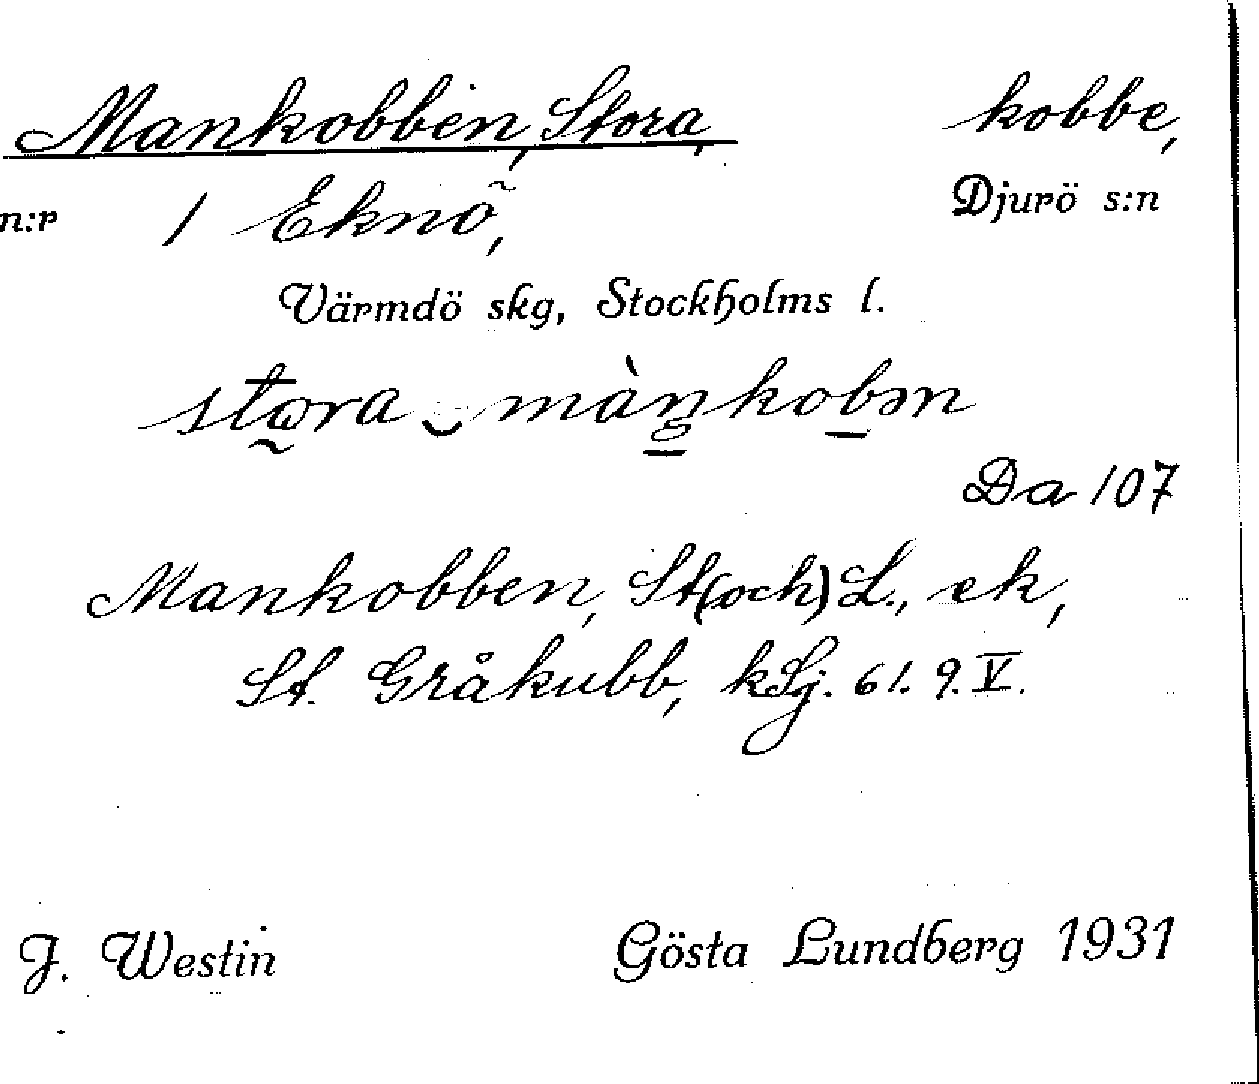 Mankobben, Stora, kobbe,
n:r 1 Eknö, Djurö s:n
Värmdö skg, Stockholms l.
Da 107
Mankobben, St(och) L., ek,
St. Gråkubb, kSj. 61. 9. V.
J. Westin Gösta Lundberg 1931